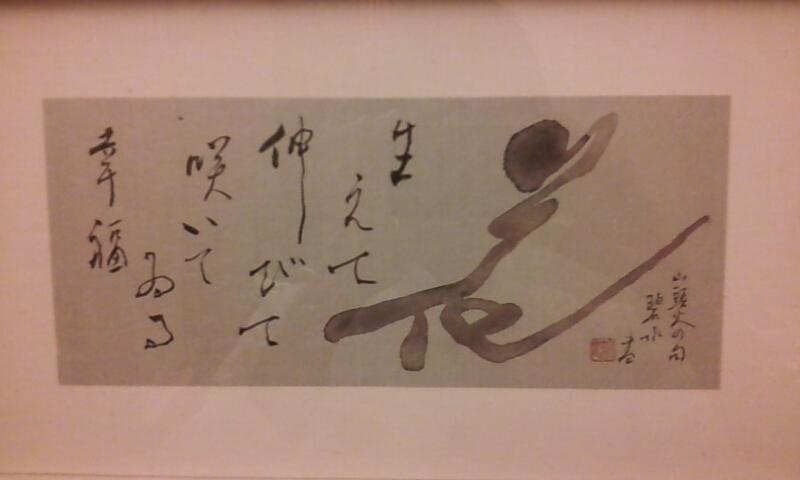 花
生えて
伸びて
咲いて
ゐる
幸福
山頭火の句
碧水
書